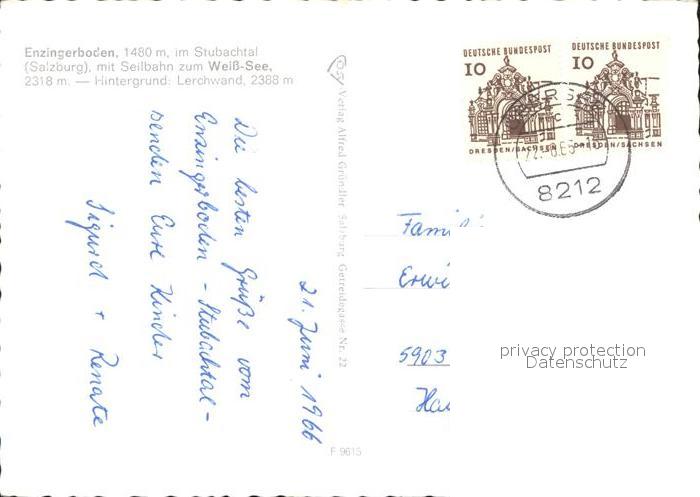 Enzingerboden, 1480 m, im Stubachtal
(Salzburg), mit Seilbahn zum Weiß-See,
2318 m. — Hintergrund: Lerchwand, 2388 m
21. Juni 1966
Die besten Grüße vom
Enzingerboden - Stubachtal -
senden Eure Kinder
Sigurd + Renate
Verlag Alfred Gründler Salzburg Getreidegasse Nr. 22
F 9615
DEUTSCHE BUNDESPOST
10
DRESDEN/SACHSEN
DEUTSCHE BUNDESPOST
10
DRESDEN/SACHSEN
8212
Fami
Erwi
5903
privacy protection
Datenschutz